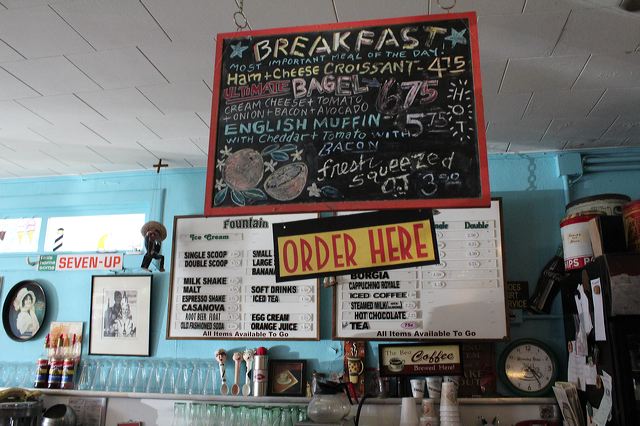 BREAKFAST
MOST IMPORTANT MEAL OF THE DAY!
Ham + Cheese CROISSANT - 4.75
ULTIMATE BAGEL - 6.75
CREAM CHEESE + TOMATO
+ ONION + BACON + AVOCADO
HOT
ENGLISH MUFFIN - 5.75
WITH Cheddar + Tomato WITH
BACON
fresh squeezed
OJ 3.00
ORDER HERE
Fountain
Ice Cream
SINGLE SCOOP
DOUBLE SCOOP
MILK SHAKE
MALT
ESPRESSO SHAKE
CASANOVA
ROOT BEER FLOAT
OLD FASHIONED SODA
SMALL
LARGE
BANANA
SOFT DRINKS
ICED TEA
EGG CREAM
ORANGE JUICE
All Items Available To Go
Double
BORGIA
CAPPUCHINO ROYALE
ICED COFFEE
STEAMED MILK
HOT CHOCOLATE
TEA
All Items Available To Go
SEVEN-UP
The Best
Coffee
Brewed Here!